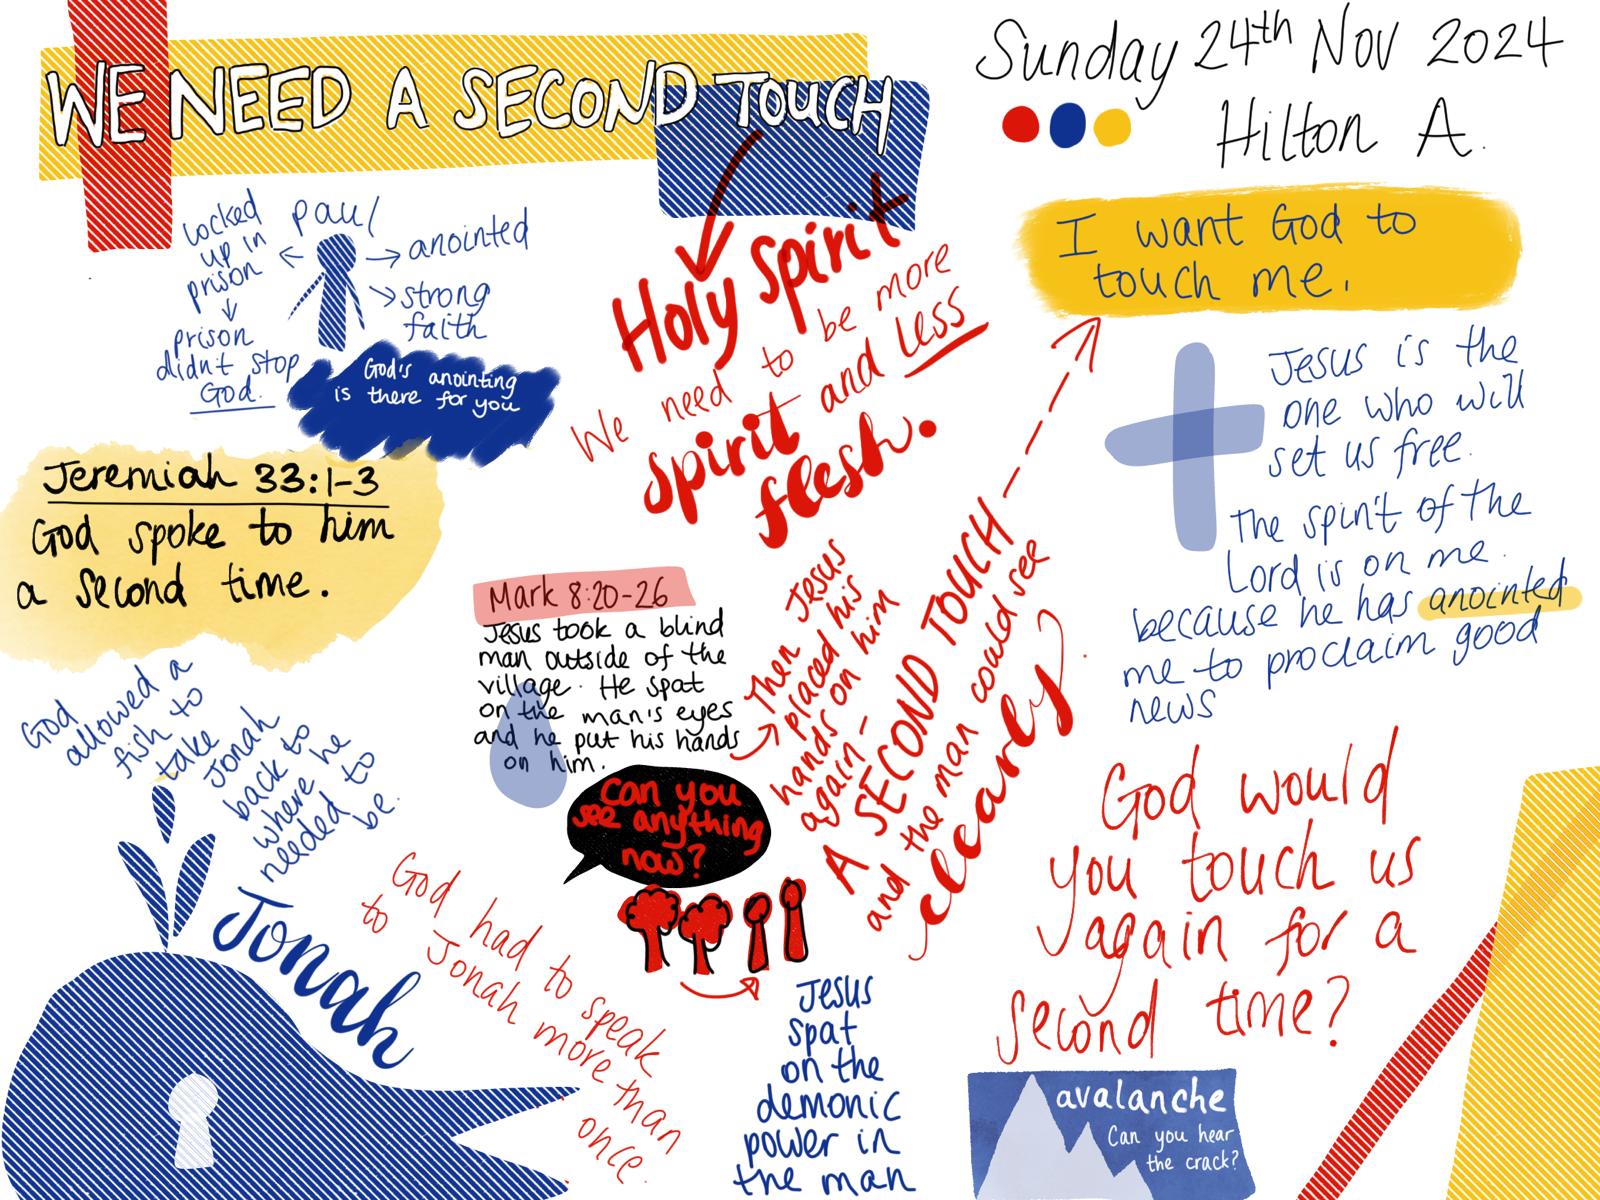 WE NEED A SECOND TOUCH
Sunday 24th Nov 2024
Hilton A.
paul
locked
up in
prison
prison
didn't stop
God.
anointed
strong
faith
God's anointing
is there for you
Holy Spirit
We need to be more
spirit and less
flesh.
I want God to
touch me.
Jesus is the
one who will
set us free.
The spirit of the
Lord is on me.
because he has anointed
me to proclaim good
news
Jeremiah 33:1-3
God spoke to him
a second time.
Mark 8:20-26
Jesus took a blind
man outside of the
village. He spat
on the man's eyes
and he put his hands
on him.
can you
see anything
now?
Then Jesus
placed his
hands on him
again -
A SECOND TOUCH
and the man could see
clearly
God
allowed a
fish to
take
Jonah
back to
where he
needed to
be.
Jonah
God had to speak
to Jonah more than
once.
Jesus
spat
on the
demonic
power in
the man
God would
you touch us
again for a
second time?
avalanche
Can you hear
the crack?